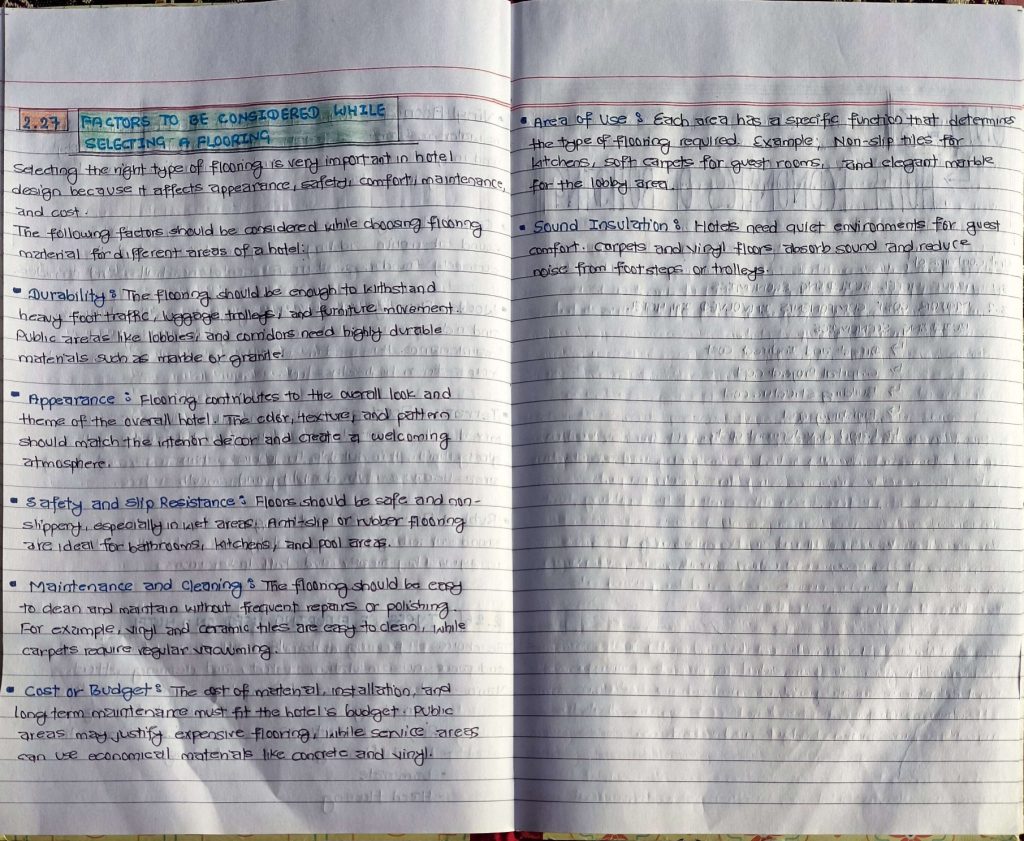 2.27 FACTORS TO BE CONSIDERED WHILE
SELECTING A FLOORING
Selecting the right type of flooring is very important in hotel
design because it affects appearance, safety, comfort, maintenance,
and cost.
The following factors should be considered while choosing flooring
material for different areas of a hotel:
• Durability: The flooring should be enough to withstand
heavy foot traffic, luggage trolleys, and furniture movement.
Public areas like lobbies, and corridors need highly durable
materials such as marble or granite.
• Appearance: Flooring contributes to the overall look and
theme of the overall hotel. The color, texture, and pattern
should match the interior decor and create a welcoming
atmosphere.
• Safety and Slip Resistance: Floors should be safe and non-
slippery, especially in wet areas. Anti-slip or rubber flooring
are ideal for bathrooms, kitchens, and pool areas.
• Maintenance and Cleaning: The flooring should be easy
to clean and maintain without frequent repairs or polishing.
For example, vinyl and ceramic tiles are easy to clean, while
carpets require regular vacuuming.
• Cost or Budget: The cost of material, installation, and
long term maintenance must fit the hotel's budget. Public
areas may justify expensive flooring, while service areas
can use economical materials like concrete and vinyl.
• Area of Use: Each area has a specific function that determines
the type of flooring required. Example: Non-slip tiles for
kitchens, soft carpets for guest rooms, and elegant marble
for the lobby area.
• Sound Insulation: Hotels need quiet environments for guest
comfort. Carpets and vinyl floors absorb sound and reduce
noise from footsteps or trolleys.